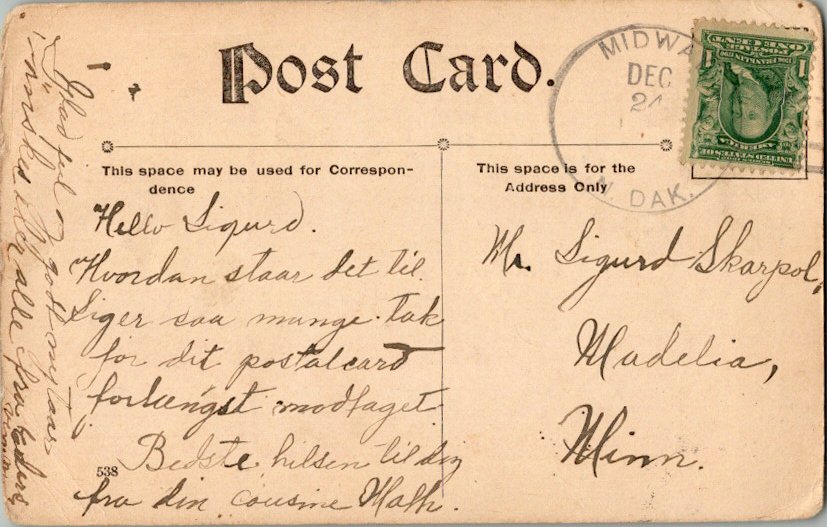 Post Card.
MIDWA
DEC
24
N. DAK.
POSTAGE
ONE CENT
1 1
FRANKLIN
AMERICA
UNITED STATES OF
This space may be used for Correspon-
dence
This space is for the
Address Only
Hello Sigurd.
Hvordan staar det til.
Siger saa mange tak
for dit postalcard
forlængst modtaget.
Bedste hilsen til dig
fra din cousine Math.
538
Glad jul og godt nytaar
ønskes der alle fra
Mr. Sigurd Skarpol,
Madelia,
Minn.